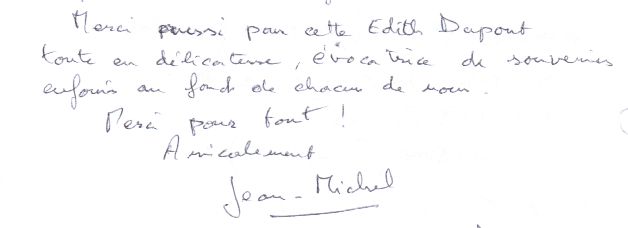 Merci aussi pour cette Edith Dupont
toute en délicatesse, évocatrice de souvenirs
enfouis au fond de chacun de nous.
Merci pour tout !
Amicalement
Jean-Michel